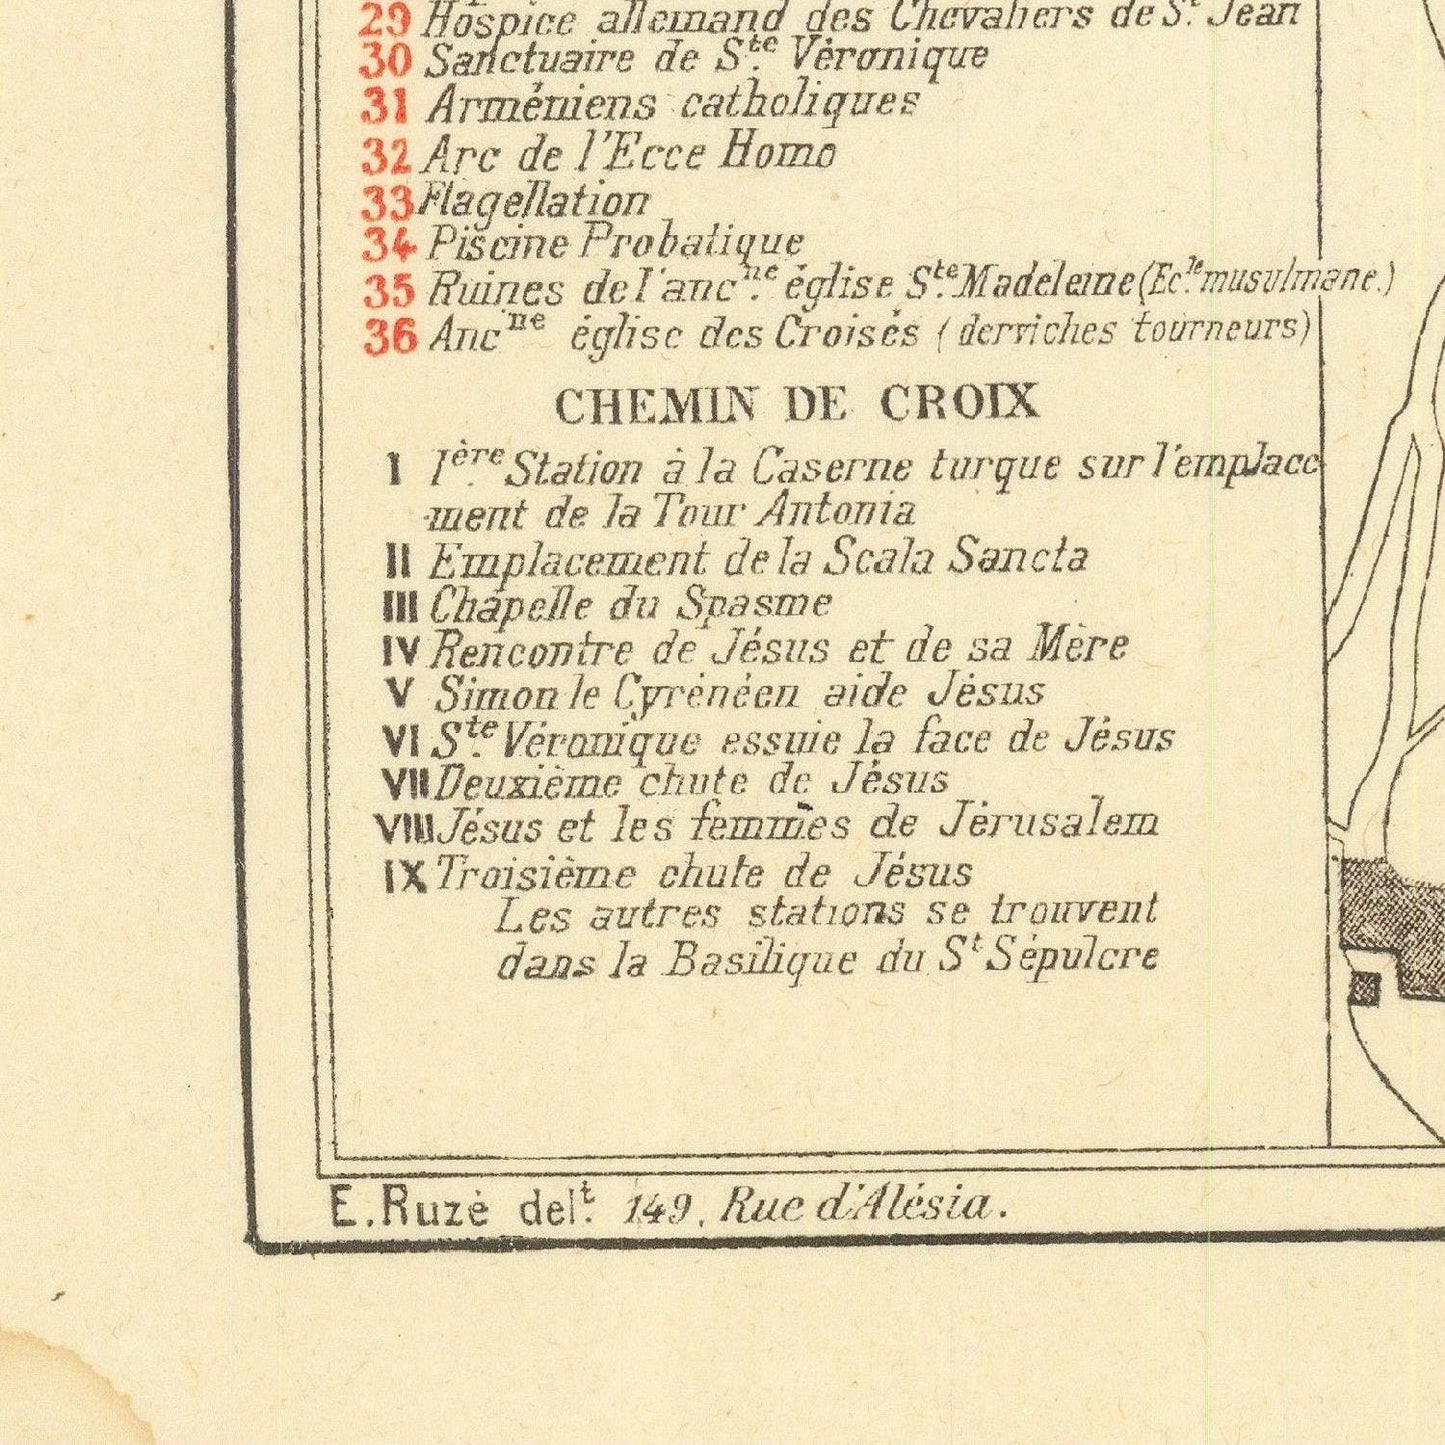 29 Hospice allemand des Chevaliers de St. Jean
30 Sanctuaire de Ste. Véronique
31 Arméniens catholiques
32 Arc de l'Ecce Homo
33 Flagellation
34 Piscine Probatique
35 Ruines de l'ancne. église Ste. Madeleine (Ecle. musulmane.)
36 Ancne église des Croisés (derviches tourneurs)
CHEMIN DE CROIX
I Ière. Station à la Caserne turque sur l'emplace
-ment de la Tour Antonia
II Emplacement de la Scala Sancta
III Chapelle du Spasme
IV Rencontre de Jésus et de sa Mère
V Simon le Cyrénéen aide Jésus
VI Ste. Véronique essuie la face de Jésus
VII Deuxième chute de Jésus
VIII Jésus et les femmes de Jérusalem
IX Troisième chute de Jésus
Les autres stations se trouvent
dans la Basilique du St Sépulcre
E. Ruzé delt. 149, Rue d'Alésia.